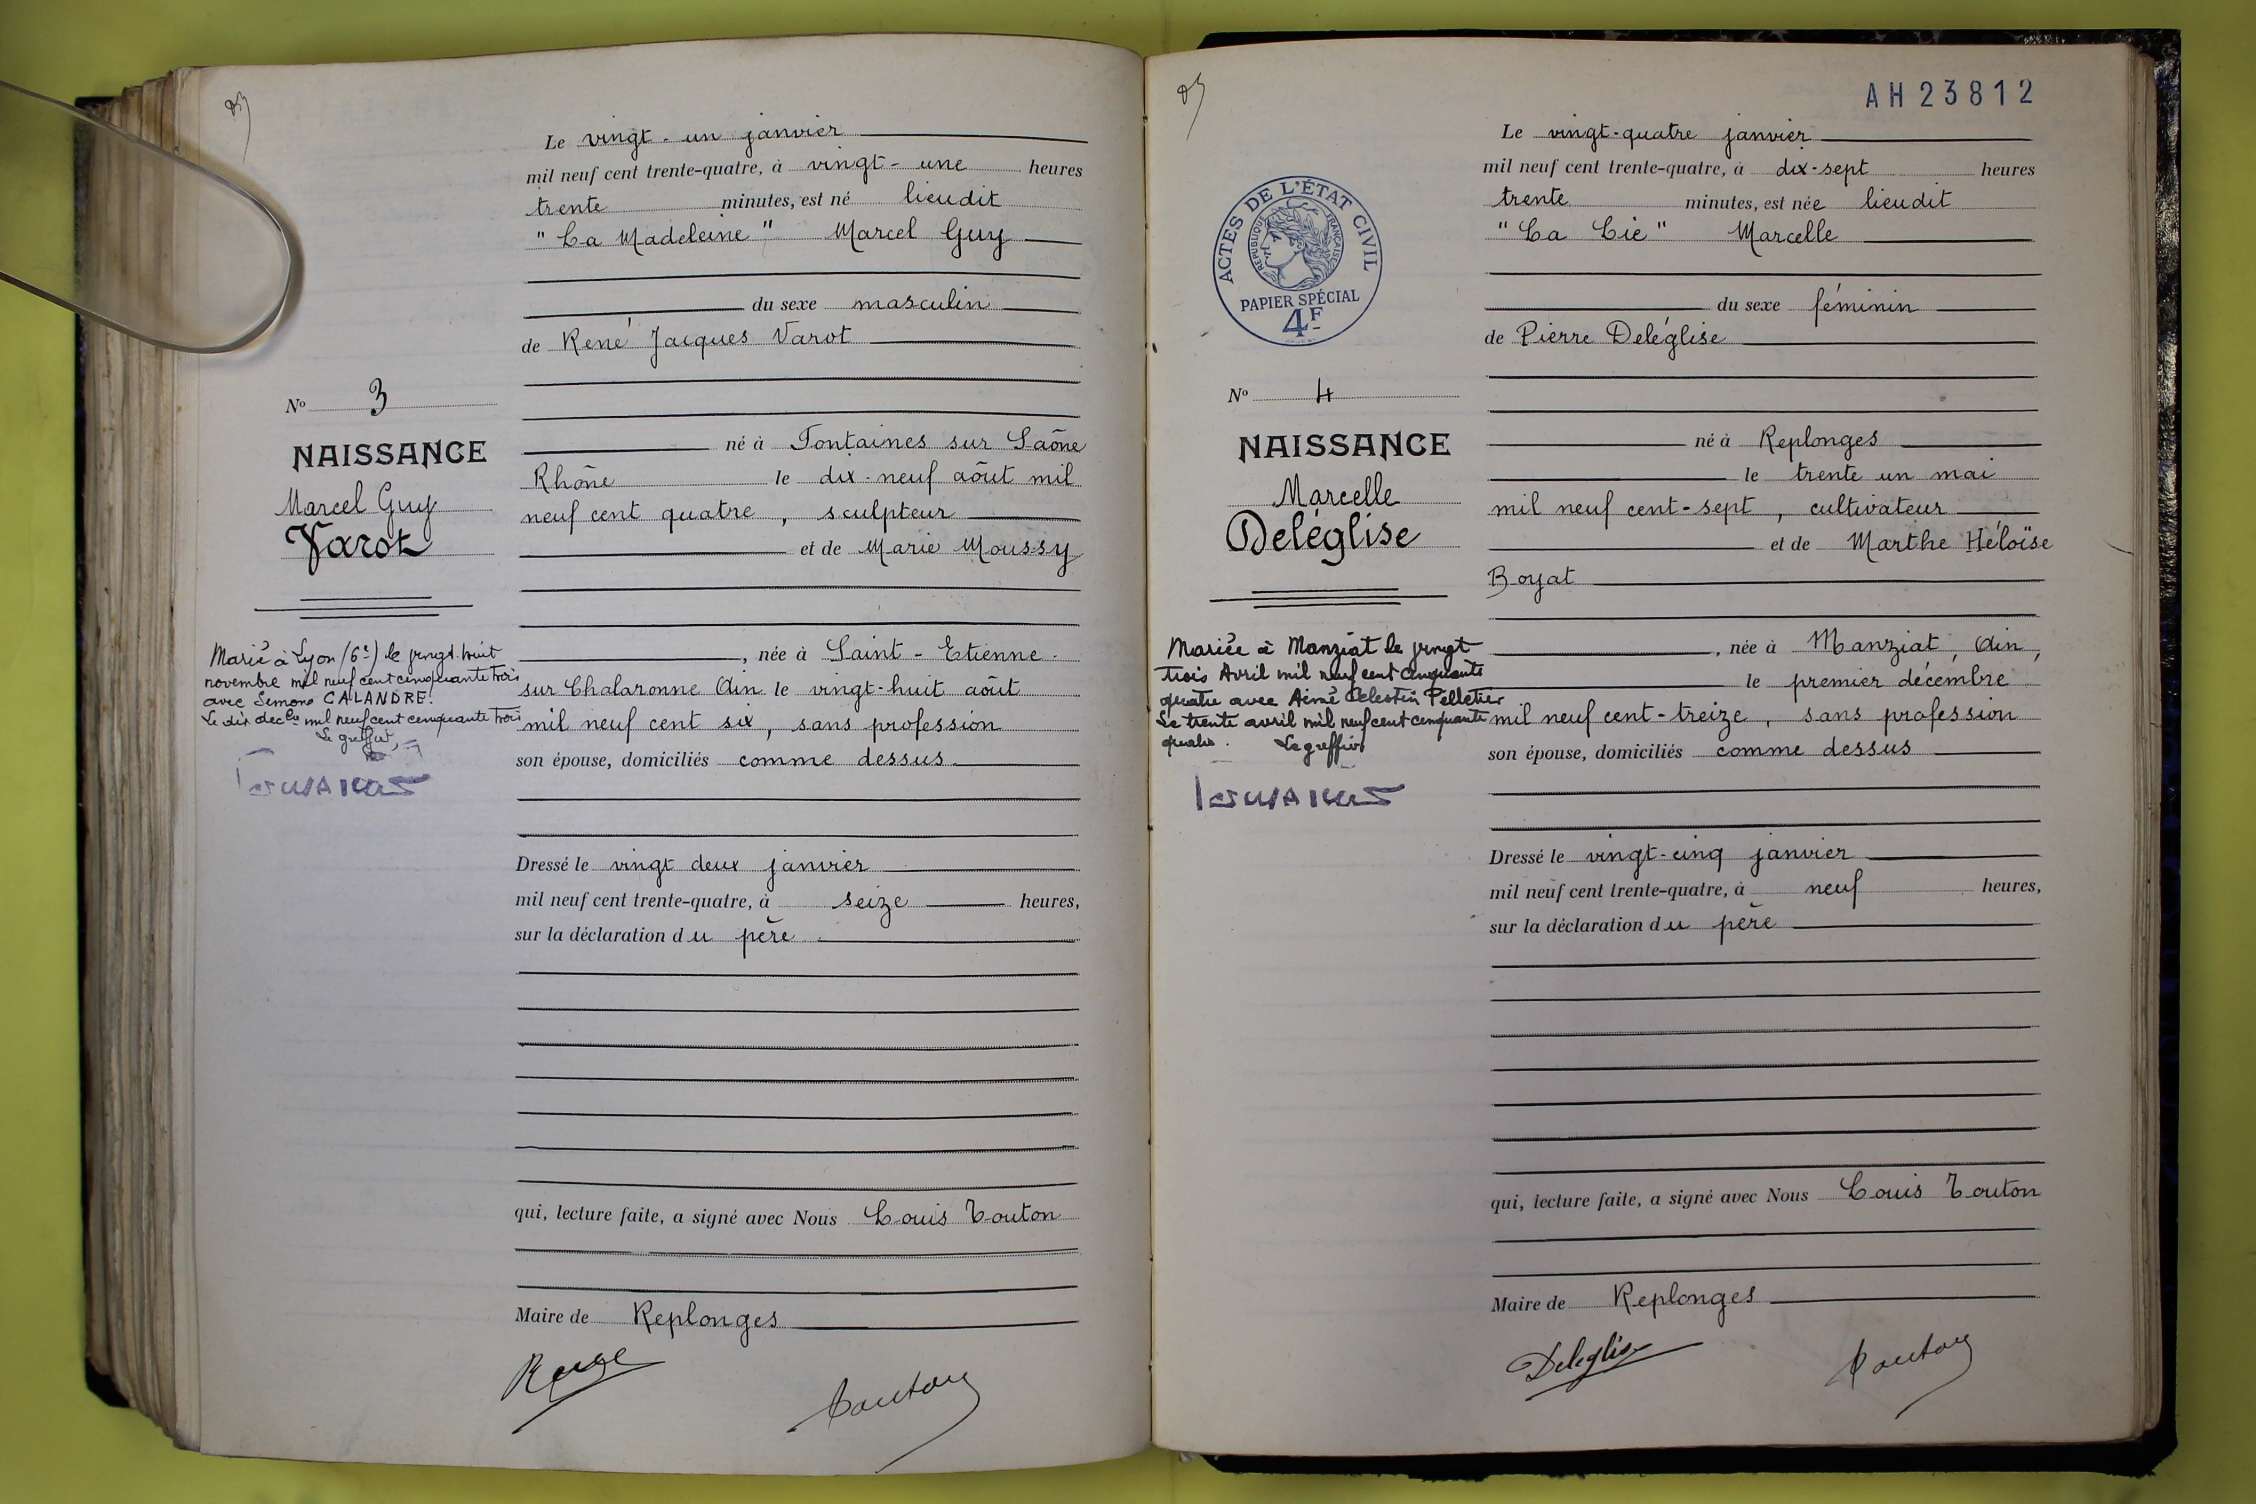 Le vingt-un janvier
mil neuf cent trente-quatre, à vingt-une heures
trente minutes, est né lieudit
"La Madeleine" Marcel Guy
du sexe masculin
de René Jacques Varot
né à Fontaines sur Saône
Rhône le dix-neuf aôut mil
neuf cent quatre, sculpteur
et de Marie Moussy
, née à Saint-Etienne-
sur Chalaronne Ain le vingt-huit aôut
mil neuf cent six, sans profession
son épouse, domiciliés comme dessus
Dressé le vingt deux janvier
mil neuf cent trente-quatre, à seize heures,
sur la déclaration du père
qui, lecture faite, a signé avec Nous Louis Touton
Maire de Replonges
Touton
No 3
NAISSANCE
Marcel Guy
Varot
Marié à Lyon (6e) le vingt-huit
novembre mil neuf cent cinquante trois
avec Simone CALANDRE.
Le dix decbre mil neuf cent cinquante trois
Le greffier,
AH23812
Le vingt-quatre janvier
mil neuf cent trente-quatre, à dix-sept heures
trente minutes, est née lieudit
"La Cie" Marcelle
du sexe féminin
de Pierre Deléglise
né à Replonges
le trente un mai
mil neuf cent-sept, cultivateur
et de Marthe Héloïse
Boyat
, née à Manziat, Ain,
le premier décembre
mil neuf cent-treize, sans profession
son épouse, domiciliés comme dessus
Dressé le vingt-cinq janvier
mil neuf cent trente-quatre, à neuf heures,
sur la déclaration du père
qui, lecture faite, a signé avec Nous Louis Touton
Maire de Replonges
Deleglise Touton
ACTES DE L'ÉTAT CIVIL
RÉPUBLIQUE FRANÇAISE
PAPIER SPÉCIAL
4F
No 4
NAISSANCE
Marcelle
Deléglise
Mariée à Manziat le vingt
trois Avril mil neuf cent cinquante
quatre avec Aimé Celestin Pelletier
Le trente avril mil neuf cent cinquante
quatre. Le greffier